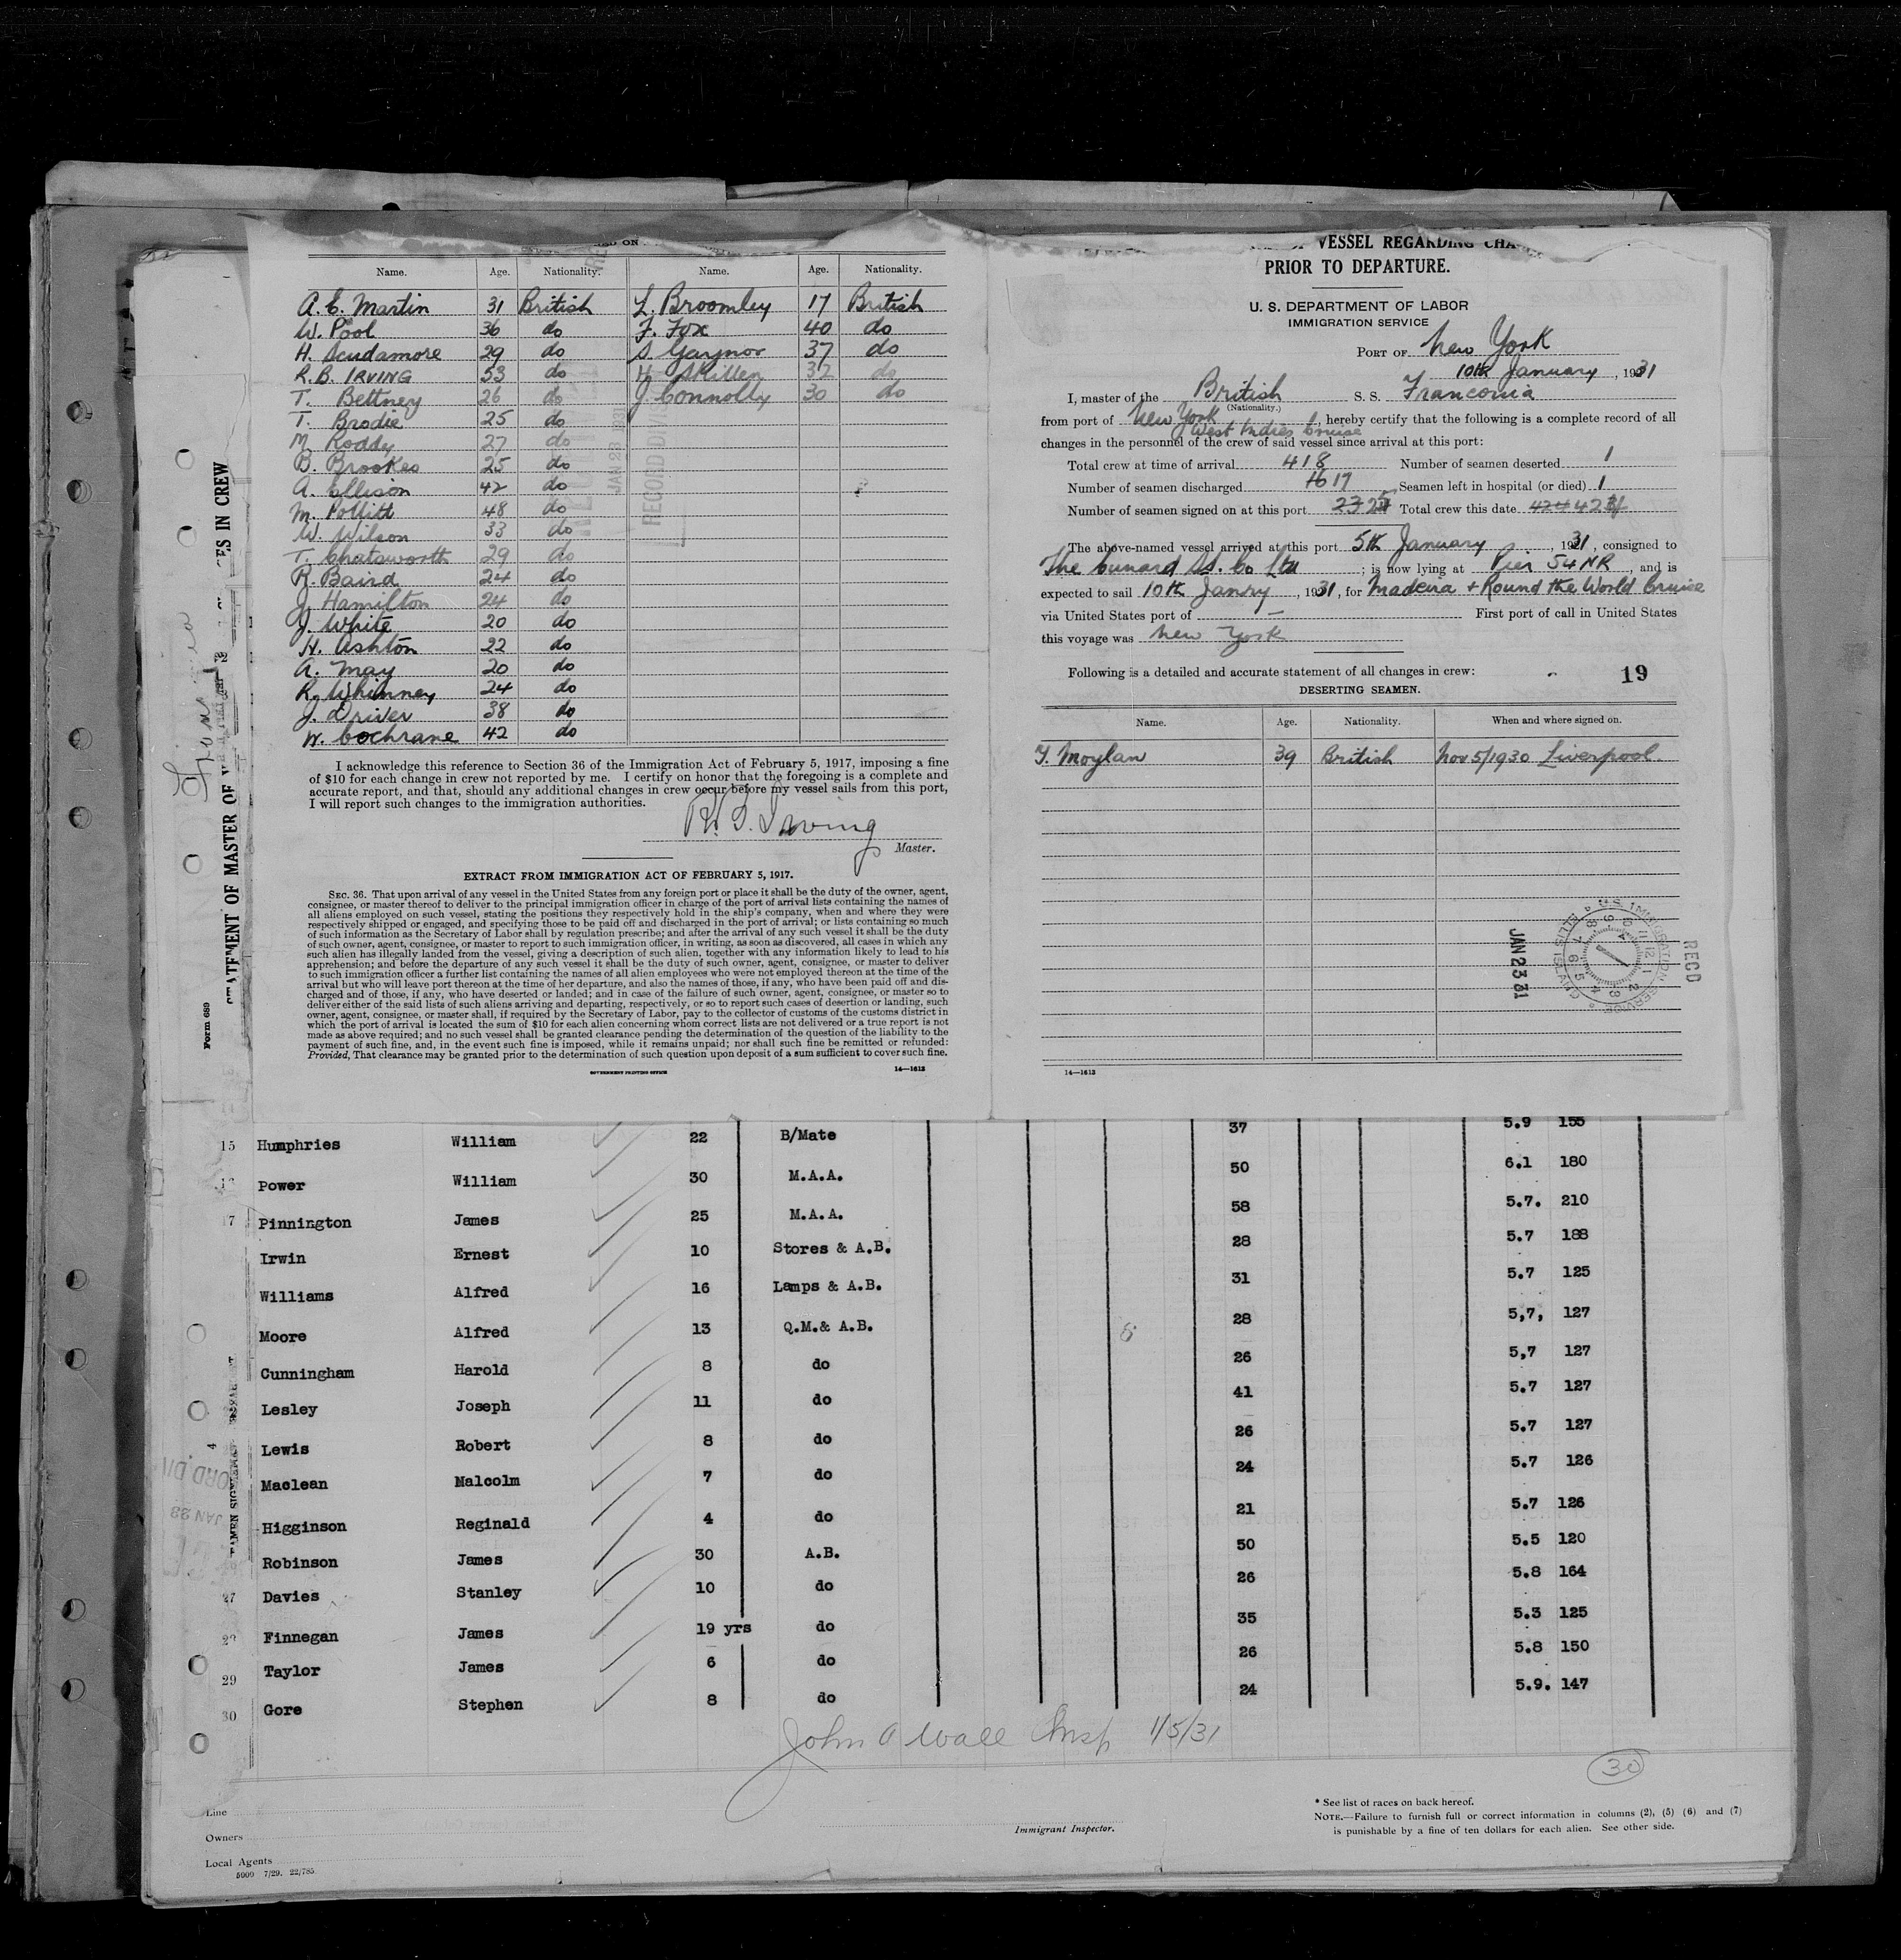 Name. Age. Nationality. Name. Age. Nationality.
A. E. Martin 31 British L. Broomley 17 British
W. Pool 36 do F. Fox 40 do
H. Scudamore 29 do S. Gaynor 37 do
R.B. IRVING 53 do H. Skillen 32 do
T. Bettney 26 do J. Connolly 30 do
T. Brodie 25 do
M. Roddy 27 do
B. Brookes 25 do
A. Ellison 42 do
M. Pollitt 48 do
W. Wilson 33 do
T. Chatsworth 29 do
R. Baird 24 do
J. Hamilton 24 do
J. White 20 do
H. Ashton 22 do
A. May 20 do
R. Whinney 24 do
J. Driver 38 do
W. Cochrane 42 do
I acknowledge this reference to Section 36 of the Immigration Act of February 5, 1917, imposing a fine
of $10 for each change in crew not reported by me. I certify on honor that the foregoing is a complete and
accurate report, and that, should any additional changes in crew occur before my vessel sails from this port,
I will report such changes to the immigration authorities.
R. B. Irving
Master.
EXTRACT FROM IMMIGRATION ACT OF FEBRUARY 5, 1917.
SEC. 36. That upon arrival of any vessel in the United States from any foreign port or place it shall be the duty of the owner, agent,
consignee, or master thereof to deliver to the principal immigration officer in charge of the port of arrival lists containing the names of
all aliens employed on such vessel, stating the positions they respectively hold in the ship's company, when and where they were
respectively shipped or engaged, and specifying those to be paid off and discharged in the port of arrival; or lists containing so much
of such information as the Secretary of Labor shall by regulation prescribe; and after the arrival of any such vessel it shall be the duty
of such owner, agent, consignee, or master to report to such immigration officer, in writing, as soon as discovered, all cases in which any
such alien has illegally landed from the vessel, giving a description of such alien, together with any information likely to lead to his
apprehension; and before the departure of any such vessel it shall be the duty of such owner, agent, consignee, or master to deliver
to such immigration officer a further list containing the names of all alien employees who were not employed thereon at the time of the
arrival but who will leave port thereon at the time of her departure, and also the names of those, if any, who have been paid off and dis-
charged and of those, if any, who have deserted or landed; and in case of the failure of such owner, agent, consignee, or master so to
deliver either of the said lists of such aliens arriving and departing, respectively, or so to report such cases of desertion or landing, such
owner, agent, consignee, or master shall, if required by the Secretary of Labor, pay to the collector of customs of the customs district in
which the port of arrival is located the sum of $10 for each alien concerning whom correct lists are not delivered or a true report is not
made as above required; and no such vessel shall be granted clearance pending the determination of the question of the liability to the
payment of such fine, and, in the event such fine is imposed, while it remains unpaid; nor shall such fine be remitted or refunded:
Provided, That clearance may be granted prior to the determination of such question upon deposit of a sum sufficient to cover such fine.
GOVERNMENT PRINTING OFFICE 14—1613
VESSEL REGARDING
PRIOR TO DEPARTURE.
U. S. DEPARTMENT OF LABOR
IMMIGRATION SERVICE
PORT OF New York
10th January, 1931
I, master of the British S. S. Franconia
(Nationality.)
from port of New York, hereby certify that the following is a complete record of all
West Indies Cruise
changes in the personnel of the crew of said vessel since arrival at this port:
Total crew at time of arrival 418 Number of seamen deserted 1
Number of seamen discharged 16 17 Seamen left in hospital (or died) 1
Number of seamen signed on at this port 23 25 Total crew this date 424 424
The above-named vessel arrived at this port 5th January, 1931, consigned to
The Cunard SS. Co Ltd; is now lying at Pier 54 NR, and is
expected to sail 10th Janry, 1931, for Madeira + Round the World Cruise
via United States port of — First port of call in United States
this voyage was New York
Following is a detailed and accurate statement of all changes in crew: 19
DESERTING SEAMEN.
Name. Age. Nationality. When and where signed on.
T. Moylan 39 British Nov 5/1930 Liverpool.
RECD
JAN 23 31
U. S. IMMIGRATION SERVICE
ELLIS ISLAND
14—1613
RECORD DIV
JAN 23 1931
Form 689
STATEMENT OF MASTER OF
ES IN CREW
37 5.9 155
15 Humphries William 22 B/Mate
50 6.1 180
Power William 30 M.A.A.
58 5.7. 210
17 Pinnington James 25 M.A.A.
28 5.7 188
Irwin Ernest 10 Stores & A.B.
31 5.7 125
Williams Alfred 16 Lamps & A.B.
28 5,7, 127
Moore Alfred 13 Q.M.& A.B.
26 5,7 127
Cunningham Harold 8 do
41 5.7 127
Lesley Joseph 11 do
26 5.7 127
Lewis Robert 8 do
24 5.7 126
Maclean Malcolm 7 do
21 5.7 126
Higginson Reginald 4 do
50 5.5 120
Robinson James 30 A.B.
26 5.8 164
27 Davies Stanley 10 do
35 5.3 125
Finnegan James 19 yrs do
26 5.8 150
29 Taylor James 6 do
24 5.9. 147
30 Gore Stephen 8 do
John A Wall Insp 1/5/31
30
Line
Owners
Local Agents
5900 7/29. 22/785.
Immigrant Inspector.
* See list of races on back hereof.
NOTE.—Failure to furnish full or correct information in columns (2), (5) (6) and (7)
is punishable by a fine of ten dollars for each alien. See other side.